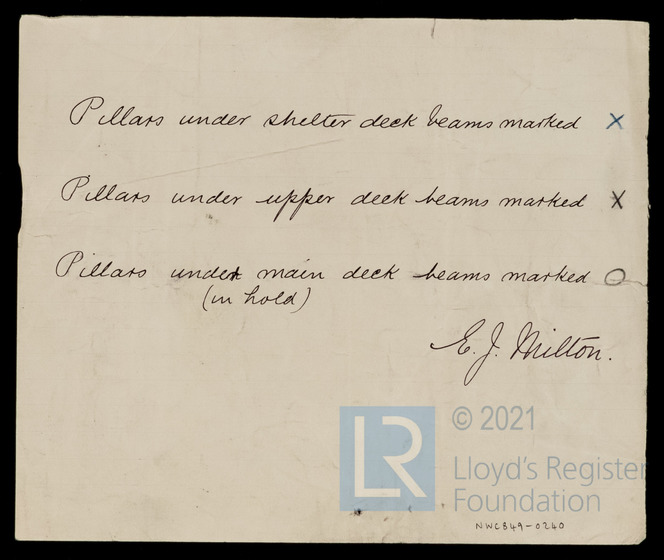 Pillars under shelter deck beams marked X
Pillars under upper deck beams marked X
Pillars under main deck beams marked O
(in hold)
E. J. Milton.
LR
© 2021
Lloyd's Register
Foundation
NWC849-0240